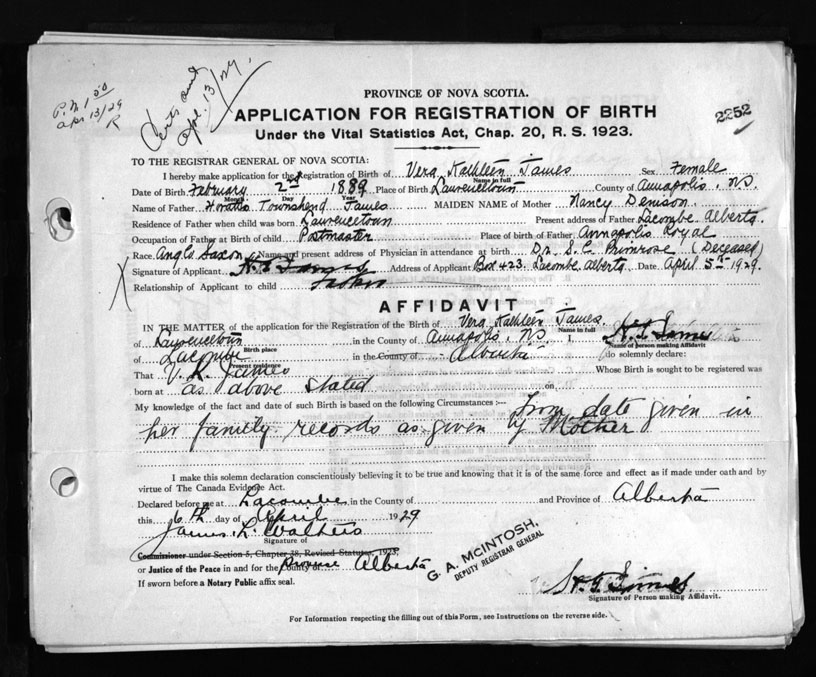 P.N. 1.50
Apr 13/29
R
Certs and
Apr. 13/29.
PROVINCE OF NOVA SCOTIA.
APPLICATION FOR REGISTRATION OF BIRTH
2252
Under the Vital Statistics Act, Chap. 20, R. S. 1923.
TO THE REGISTRAR GENERAL OF NOVA SCOTIA:
I hereby make application for the Registration of Birth of Vera Kathleen James Sex Female
Name in full
Date of Birth February 2nd 1889 Place of Birth Laurencetown County of Annapolis, NS.
Month Day Year
Name of Father Townshend James MAIDEN NAME of Mother Nancy Denison
Residence of Father when child was born Laurencetown Present address of Father Lacombe Alberta.
Occupation of Father at Birth of child Postmaster Place of birth of Father Annapolis Royal
Race Anglo Saxon Name and present address of Physician in attendance at birth Dr. S. C. Primrose (Deceased)
Signature of Applicant James Address of Applicant Box 423. Lacombe, Alberta Date April 5th 1929.
Relationship of Applicant to child Father
AFFIDAVIT
IN THE MATTER of the application for the Registration of the Birth of Vera Kathleen James
Name in full
of Laurencetown in the County of Annapolis, NS. I, James
Birth place Name of person making Affidavit
of Lacombe in the County of Alberta do solemnly declare:
Present residence
That V. K. James Whose Birth is sought to be registered was
born at as above stated on
My knowledge of the fact and date of such Birth is based on the following Circumstances:— From date given in
her family records as given by Mother
I make this solemn declaration conscientiously believing it to be true and knowing that it is of the same force and effect as if made under oath and by
virtue of The Canada Evidence Act.
Declared before me at Lacombe in the County of and Province of Alberta
this 6th day of April 1929
James L. Walters
Signature of
Commissioner under Section 5, Chapter 38, Revised Statutes, 1923.
or Justice of the Peace in and for the County of Province Alberta
If sworn before a Notary Public affix seal.
G. A. MCINTOSH,
DEPUTY REGISTRAR GENERAL
James
Signature of Person making Affidavit.
For Information respecting the filling out of this Form, see Instructions on the reverse side.